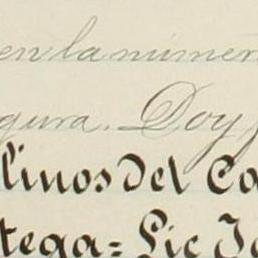 en la númer
gura. Doy f
linos del Ca
tega = Lic Jo